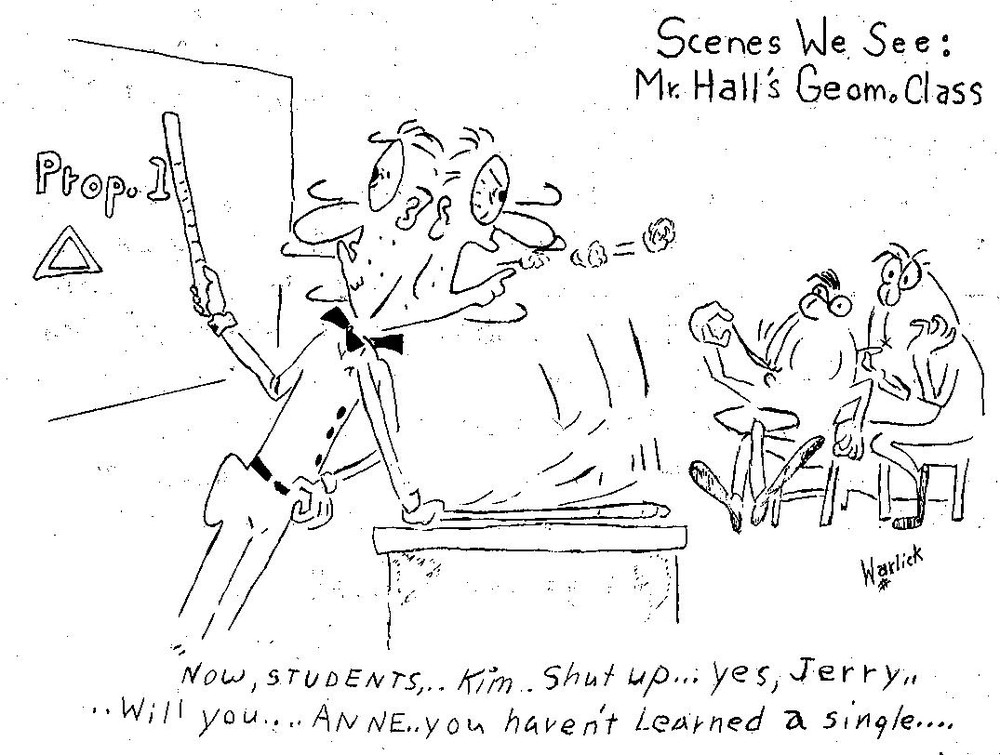 Scenes We See:
Mr. Hall's Geom. Class
Prop. 1
=
Warlick
NOW, STUDENTS,.. Kim.. Shut up... yes, Jerry..
..Will you.... ANNE..you haven't Learned a single....